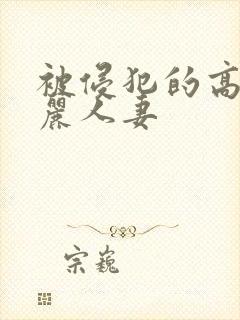 被侵犯的高
麗人妻
宗巍